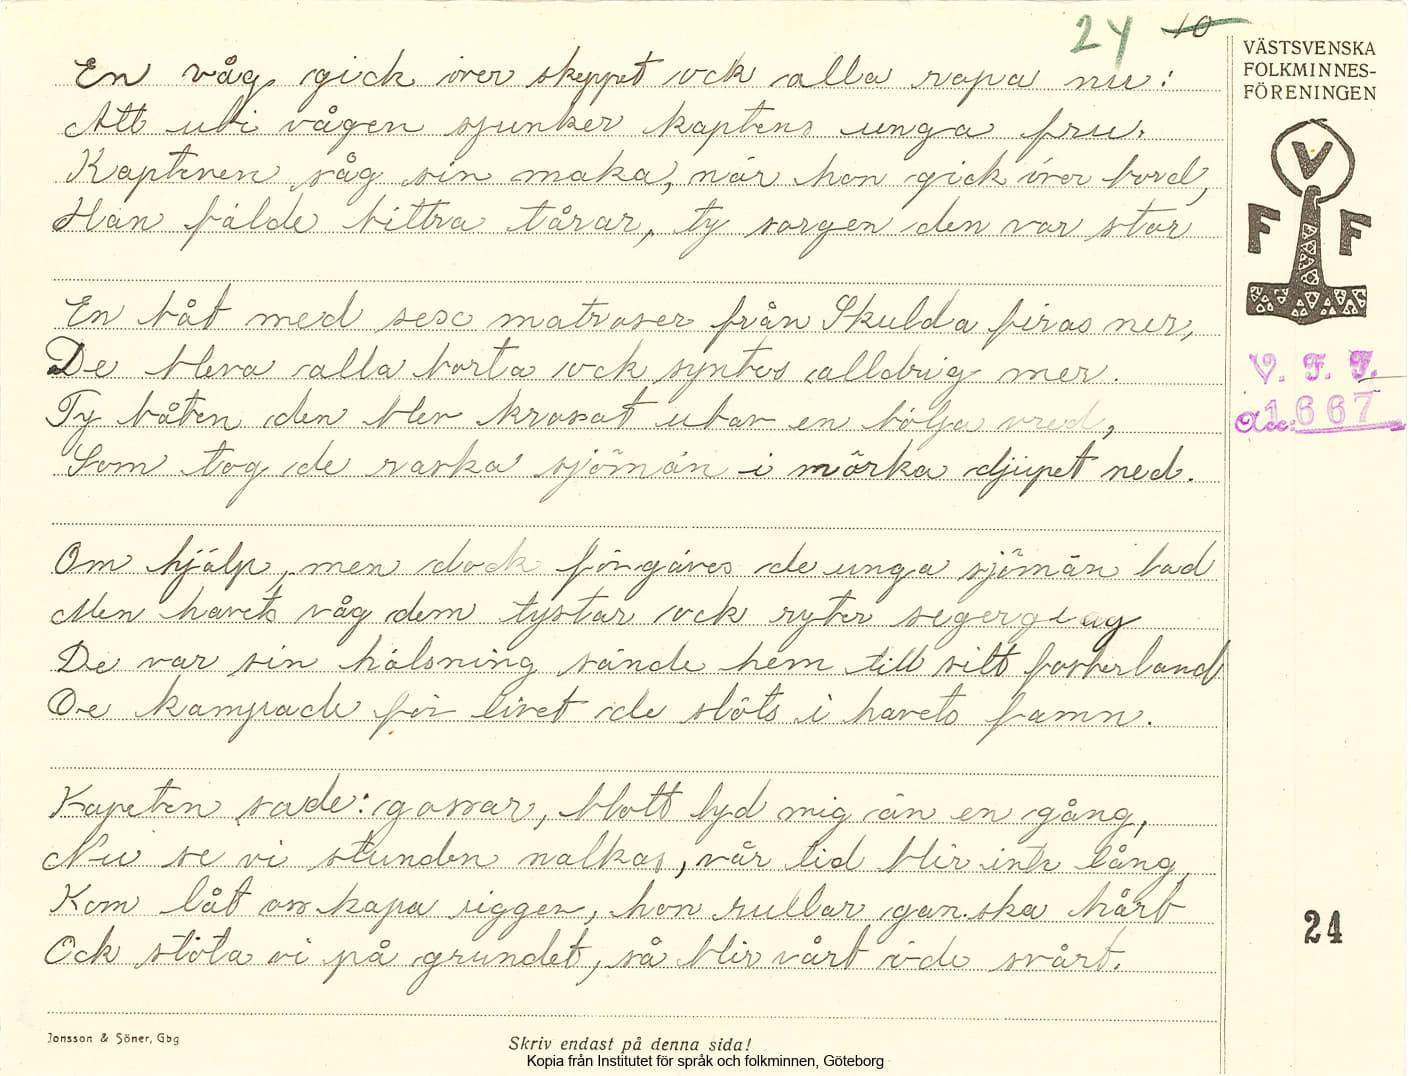 24 10
VÄSTSVENSKA
FOLKMINNES-
FÖRENINGEN
En våg gick över skeppet ock alla ropa nu:
Att uti vågen sjunker kaptens unga fru.
Kaptenen såg sin maka, när hon gick över bord,
Han fälde bittra tårar, ty sorgen den var stor
V
F F
En båt med sex matroser från Skulda firas ner,
De bleva alla borta ock syntes alldrig mer.
Ty båten den blev krossat utav en bölja vred,
Som tog de raska sjömän i mörka djupet ned.
V. F. F.
Acc: 1667
Om hjälp, men dock förgäves de unga sjömän bad
Men havets våg dem tystar ock ryter
De var sin hälsning sände hem till sitt fosterland
De kämpade för livet de slöts i havets famn.
Kapeten sade: gossar, blott lyd mig än en gång,
Nu se vi stunden nalkas, vår tid blir inte lång,
Kom låt oss kapa riggen, hon rullar ganska hårt
Ock stöta vi på grundet, så blir vårt öde svårt.
24
Jonsson & Söner, Gbg
Skriv endast på denna sida!
Kopia från Institutet för språk och folkminnen, Göteborg